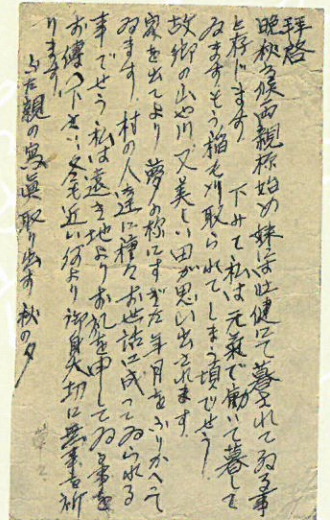 拝啓
晩秋の候両親様始め妹には壮健にて暮されてゐる事
と存じます 下みて私は元気で働いて暮して
ゐますもう稲も刈取られてしまう頃でせう
故郷の山や川又美しい田が思い出されます
家を出てより夢の様にすぎた年月をふりかへって
ゐます 村の人達に種々お世話に成ってゐられる
事でせう 私は遠き地よりお礼を申してゐる事を
お傳へ下さい 冬も近い何より御身大切に無事を祈
ります
ふた親の寫眞取り出す秋の夕
草々